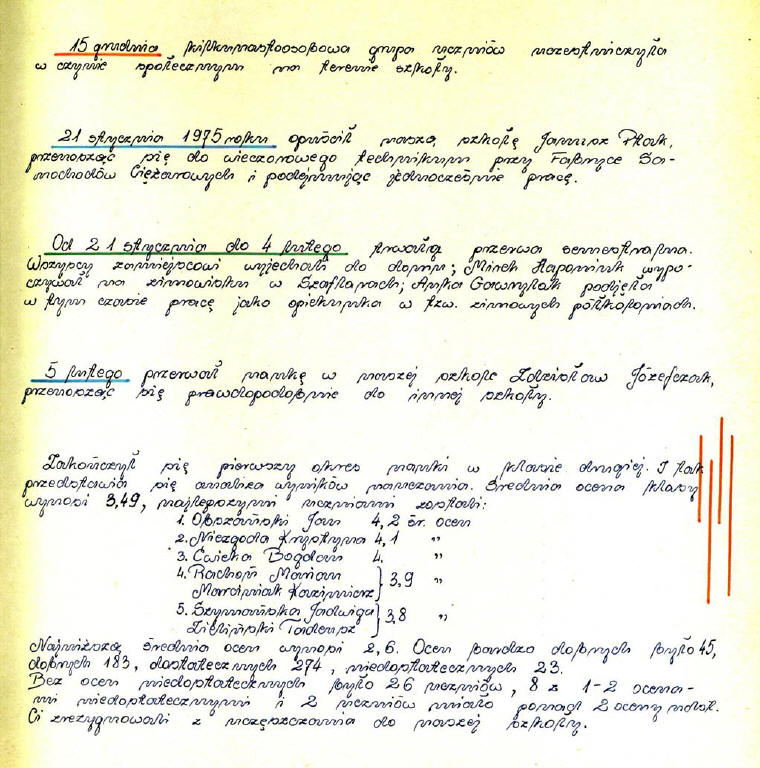 15 grudnia kilkunastoosobowa grupa uczniów uczestniczyła
w czynie społecznym na terenie szkoły.
21 stycznia 1975 roku opuścił naszą szkołę Janusz Ptak,
przenosząc się do wieczorowego technikum przy Fabryce Sa-
mochodów Ciężarowych i podejmując jednocześnie pracę.
Od 21 stycznia do 4 lutego trwała przerwa semestralna.
Wszyscy zamiejscowi wyjechali do domu; Mirek Haponiuk wypo-
czywał na zimowisku w Szaflarach; Anka Gawrylak podjęła
w tym czasie pracę jako opiekunka w tzw. zimowych półkoloniach.
5 lutego przerwał naukę w naszej szkole Zdzisław Józefczak,
przenosząc się prawdopodobnie do innej szkoły.
Zakończył się pierwszy okres nauki w klasie drugiej. I tak
przedstawia się analiza wyników nauczania. Średnia ocena klasy
wynosi 3,49, najlepszymi uczniami zostali:
1. Olszański Jan 4,2 śr. ocen
2. Niezgoda Krystyna 4,1 "
3. Ćwiека Bogdan 4. "
4. Rachoń Marian
Marciniak Kazimierz } 3,9 "
5. Szymańska Jadwiga
Zieliński Tadeusz } 3,8 "
Najniższa średnia ocen wynosi 2,6. Ocen bardzo dobrych było 45,
dobrych 183, dostatecznych 274, niedostatecznych 23.
Bez ocen niedostatecznych było 26 uczniów, 8 z 1-2 ocena-
mi niedostatecznymi i 2 uczniów miało ponad 2 oceny ndst.
Ci zrezygnowali z uczęszczania do naszej szkoły.